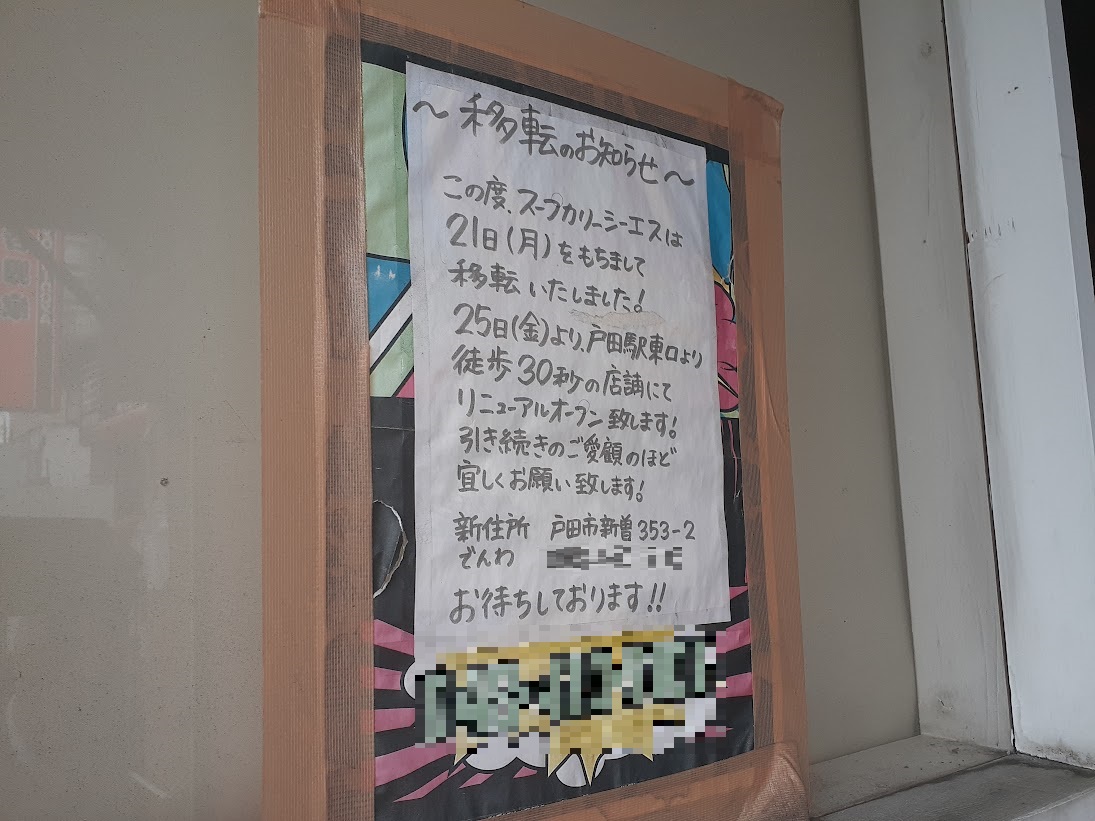 ～移転のお知らせ～
この度、スープカリーシーエスは
21日(月)をもちまして
移転いたしました!
25日(金)より、戸田駅東口より
徒歩30秒の店舗にて
リニューアルオープン致します!
引き続きのご愛顧のほど
宜しくお願い致します!
新住所 戸田市新曽353-2
でんわ
お待ちしております!!